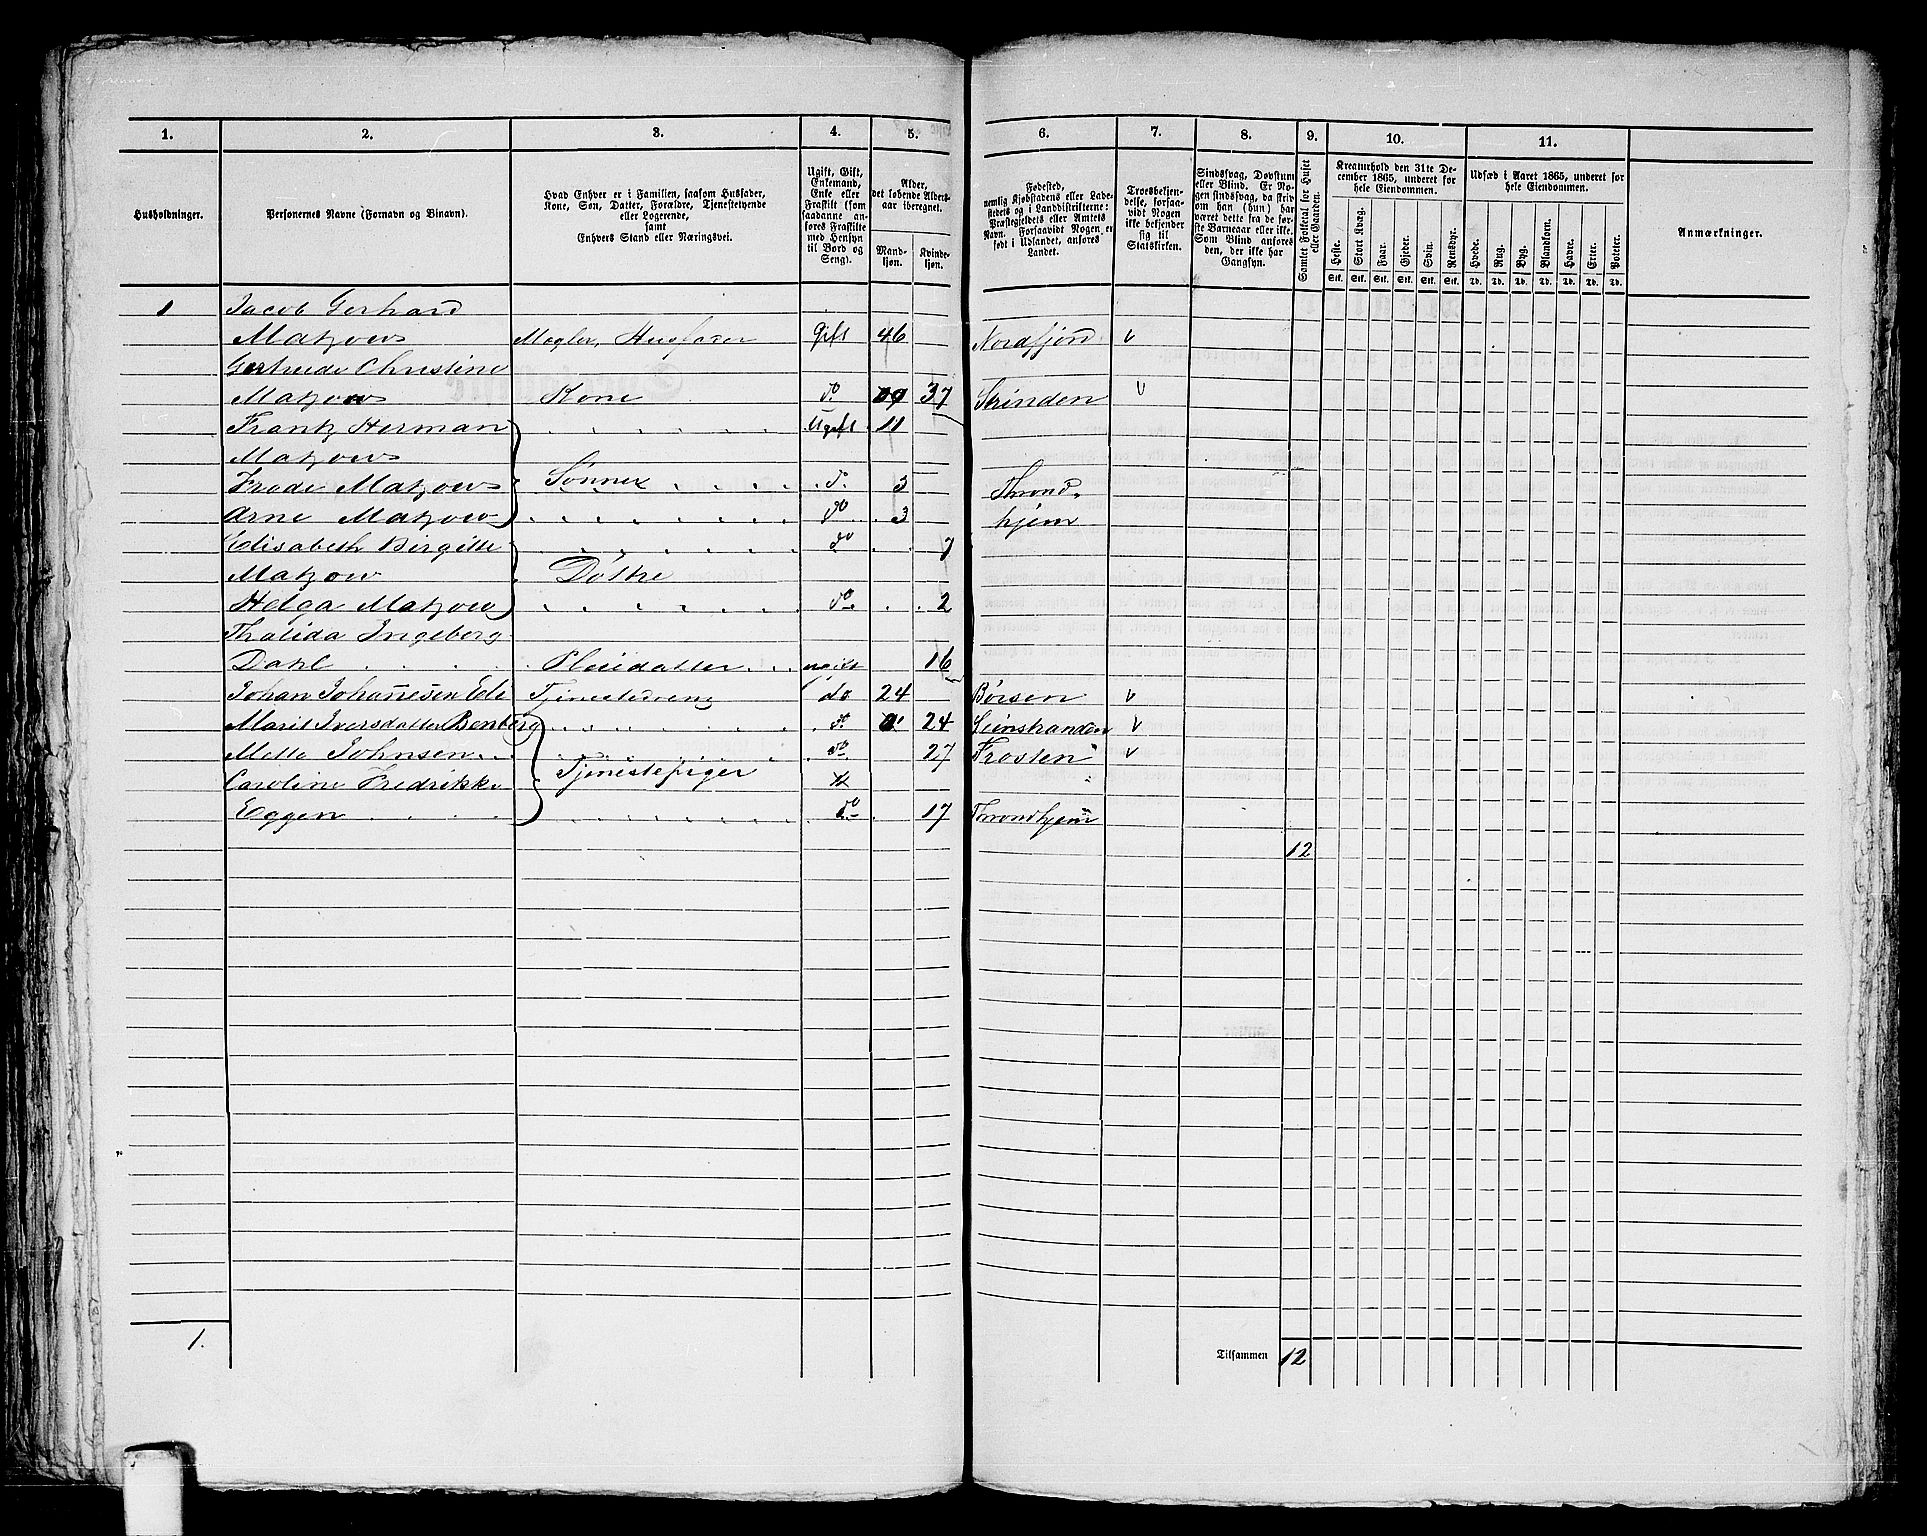 1. 2. 3. 4. 5. 6. 7. 8. 9. 10. 11.
Husholdninger.
Personernes Navne (Fornavn og Binavn).
Hvad Enhver er i Familien, saasom Husfader,
Kone, Søn, Datter, Forældre, Tjenestetyende
eller Logerende,
samt
Enhvers Stand eller Næringsvei.
Ugift, Gift,
Enkemand,
Enke eller
Fraskilt (som
saadanne an-
føres Fraskilte
med Hensyn
til Bord og
Seng).
Alder,
det løbende Alders-
aar iberegnet.
Mand-
kjøn.
Kvinde-
kjøn.
Fødested,
nemlig Kjøbstadens eller Lade-
stedets og i Landdistrikterne:
Præstegjeldets eller Amtets
Navn. Forsaavidt Nogen er
født i Udlandet, anføres
Landet.
Troesbekjen-
delse, forsaa-
vidt Nogen
ikke bekjender
sig til
Statskirken.
Sindssvag, Døvstum
eller Blind. Er No-
gen sindssvag, da skriv
om han (hun) har
været dette fra de før-
ste Barneaar eller ikke.
Som Blind anføres
den, der ikke har
Gangsyn.
Samlet Folketal for Huset
eller Gaarden.
Kreaturhold den 31te De-
cember 1865, underet for
hele Eiendommen.
Heste. Stort Kvæg. Faar. Gjeder. Svin. Rensdyr.
Stk. Stk. Stk. Stk. Stk. Stk.
Udsæd i Aaret 1865, underet for
hele Eiendommen.
Hvede. Rug. Byg. Blandkorn. Havre. Erter. Poteter.
Td. Td. Td. Td. Td. Td. Td.
Anmærkninger.
1 Jacob Gerhard
Matzow Mægler, Husfader Gift 46 Nordfjord v
Gertrude Christine
Matzow Kone do 37 Strinden v
Frantz Herman Ugift 11
Matzow
Frode Matzow Sønner do 3 Thrond-
Arne Matzow do 3 hjem
Elisabeth Birgitte do 7
Matzow Døtre
Helga Matzow do 2
Thalida Ingeborg
Dahl Pleiedatter ugift 16
Johan Johannesen Tjenestedreng do 24 Børsen v
Marit Iversdatter Benberg do 24 Leinstranden v
Mette Johnsen do 27 Frosten v
Caroline Fredrikke Tjenestepiger
Eggen do 17 Throndhjem
12
1.
Tilsammen 12